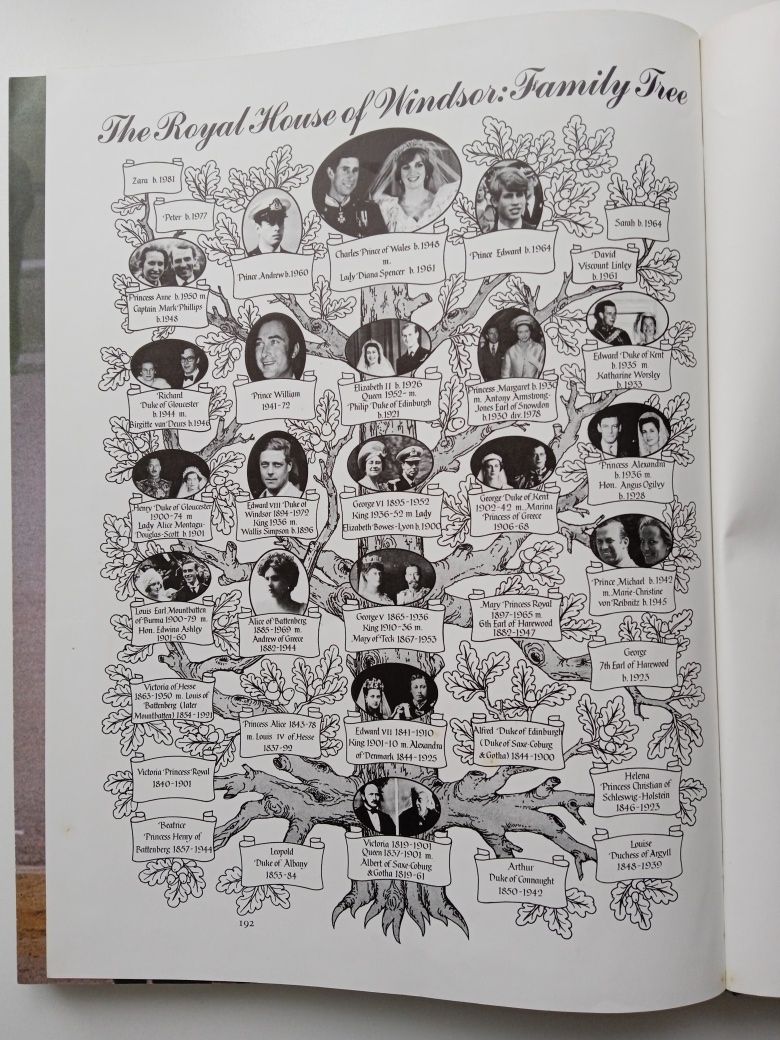 The Royal House of Windsor: Family Tree
Zara b.1981
Peter b.1977
Sarah b.1964
Prince Andrew b.1960
Charles Prince of Wales b.1948
m.
Lady Diana Spencer b.1961
Prince Edward b.1964
David
Viscount Linley
b.1961
Princess Anne b.1950 m
Captain Mark Phillips
b.1948
Richard
Duke of Gloucester
b.1944 m
Birgitte van Deurs b.1946
Prince William
1941-72
Elizabeth II b.1926
Queen 1952- m.
Philip Duke of Edinburgh
b.1921
Princess Margaret b.1930
m. Antony Armstrong-
Jones Earl of Snowdon
b.1930 div.1978
Edward Duke of Kent
b.1935 m
Katharine Worsley
b.1933
Henry Duke of Gloucester
1900-74 m
Lady Alice Montagu-
Douglas-Scott b.1901
Edward VIII Duke of
Windsor 1894-1972
King 1936 m
Wallis Simpson b.1896
George VI 1895-1952
King 1936-52 m Lady
Elizabeth Bowes-Lyon b.1900
George Duke of Kent
1902-42 m. Marina
Princess of Greece
1906-68
Princess Alexandra
b.1936 m.
Hon. Angus Ogilvy
b.1928
Louis Earl Mountbatten
of Burma 1900-79 m.
Hon. Edwina Ashley
1901-60
Alice of Battenberg
1885-1969 m.
Andrew of Greece
1882-1944
George V 1865-1936
King 1910-36 m.
Mary of Teck 1867-1953
Mary Princess Royal
1897-1965 m.
6th Earl of Harewood
1882-1947
Prince Michael b.1942
m. Marie-Christine
von Reibnitz b.1945
George
7th Earl of Harewood
b.1923
Victoria of Hesse
1863-1950 m. Louis of
Battenberg (later
Mountbatten) 1854-1991
Princess Alice 1843-78
m. Louis IV of Hesse
1837-92
Edward VII 1841-1910
King 1901-10 m. Alexandra
of Denmark 1844-1925
Alfred Duke of Edinburgh
(Duke of Saxe-Coburg
& Gotha) 1844-1900
Victoria Princess Royal
1840-1901
Helena
Princess Christian of
Schleswig-Holstein
1846-1923
Beatrice
Princess Henry of
Battenberg 1857-1944
Leopold
Duke of Albany
1853-84
Victoria 1819-1901
Queen 1837-1901 m.
Albert of Saxe-Coburg
& Gotha 1819-61
Arthur
Duke of Connaught
1850-1942
Louise
Duchess of Argyll
1848-1939
192